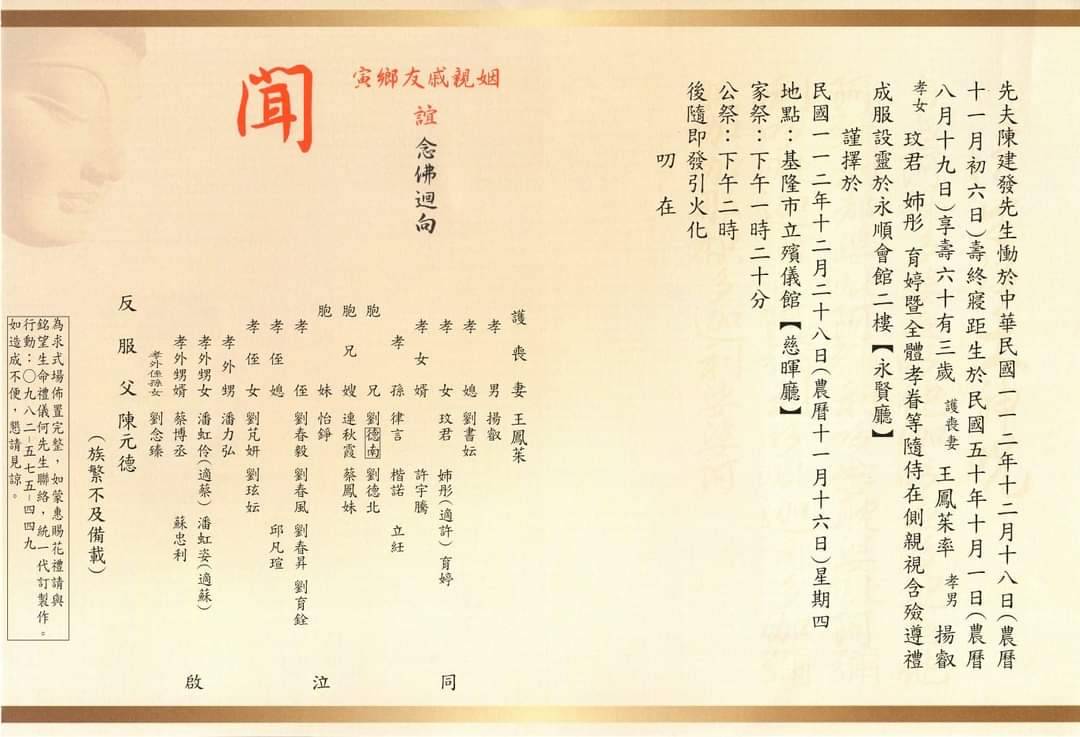 先夫陳建發先生慟於中華民國一一二年十二月十八日(農曆
十一月初六日)壽終寢距生於民國五十年十月一日(農曆
八月十九日)享壽六十有三歲 護喪妻 王鳳茱率 孝男 揚叡
孝女 玟君 姊彤 育婷暨全體孝眷等隨侍在側親視含殮遵禮
成服設靈於永順會館二樓【永賢廳】
謹擇於
民國一一二年十二月二十八日(農曆十一月十六日)星期四
地點:基隆市立殯儀館【慈暉廳】
家祭:下午一時二十分
公祭:下午二時
後隨即發引火化
叨在
姻親戚友鄉寅
誼 念佛迴向
聞
護喪妻 王鳳茱
孝男 揚叡
孝媳 劉書妘
孝女 玟君 姊彤(適許) 育婷
孝女婿 許宇騰
孝孫 律言 楷諾 立紝
胞兄 劉德南 劉德北
胞兄嫂 連秋霞 蔡鳳妹
胞妹 怡錚
孝侄 劉春毅 劉春風 劉春昇 劉育銓
孝侄媳 邱凡瑄
孝侄女 劉芃妍 劉玹妘
孝外甥 潘力弘
孝外甥女 潘虹伶(適蔡) 潘虹姿(適蘇)
孝外甥婿 蔡博丞 蘇忠利
孝外侄孫女 劉念臻
反服父 陳元德
(族繁不及備載)
同泣啟
為求式場佈置完整,如蒙惠賜花禮請與
銘望生命禮儀何先生聯絡,統一代訂製作。
行動:○九八二-五七五-四四九
如造成不便,懇請見諒。